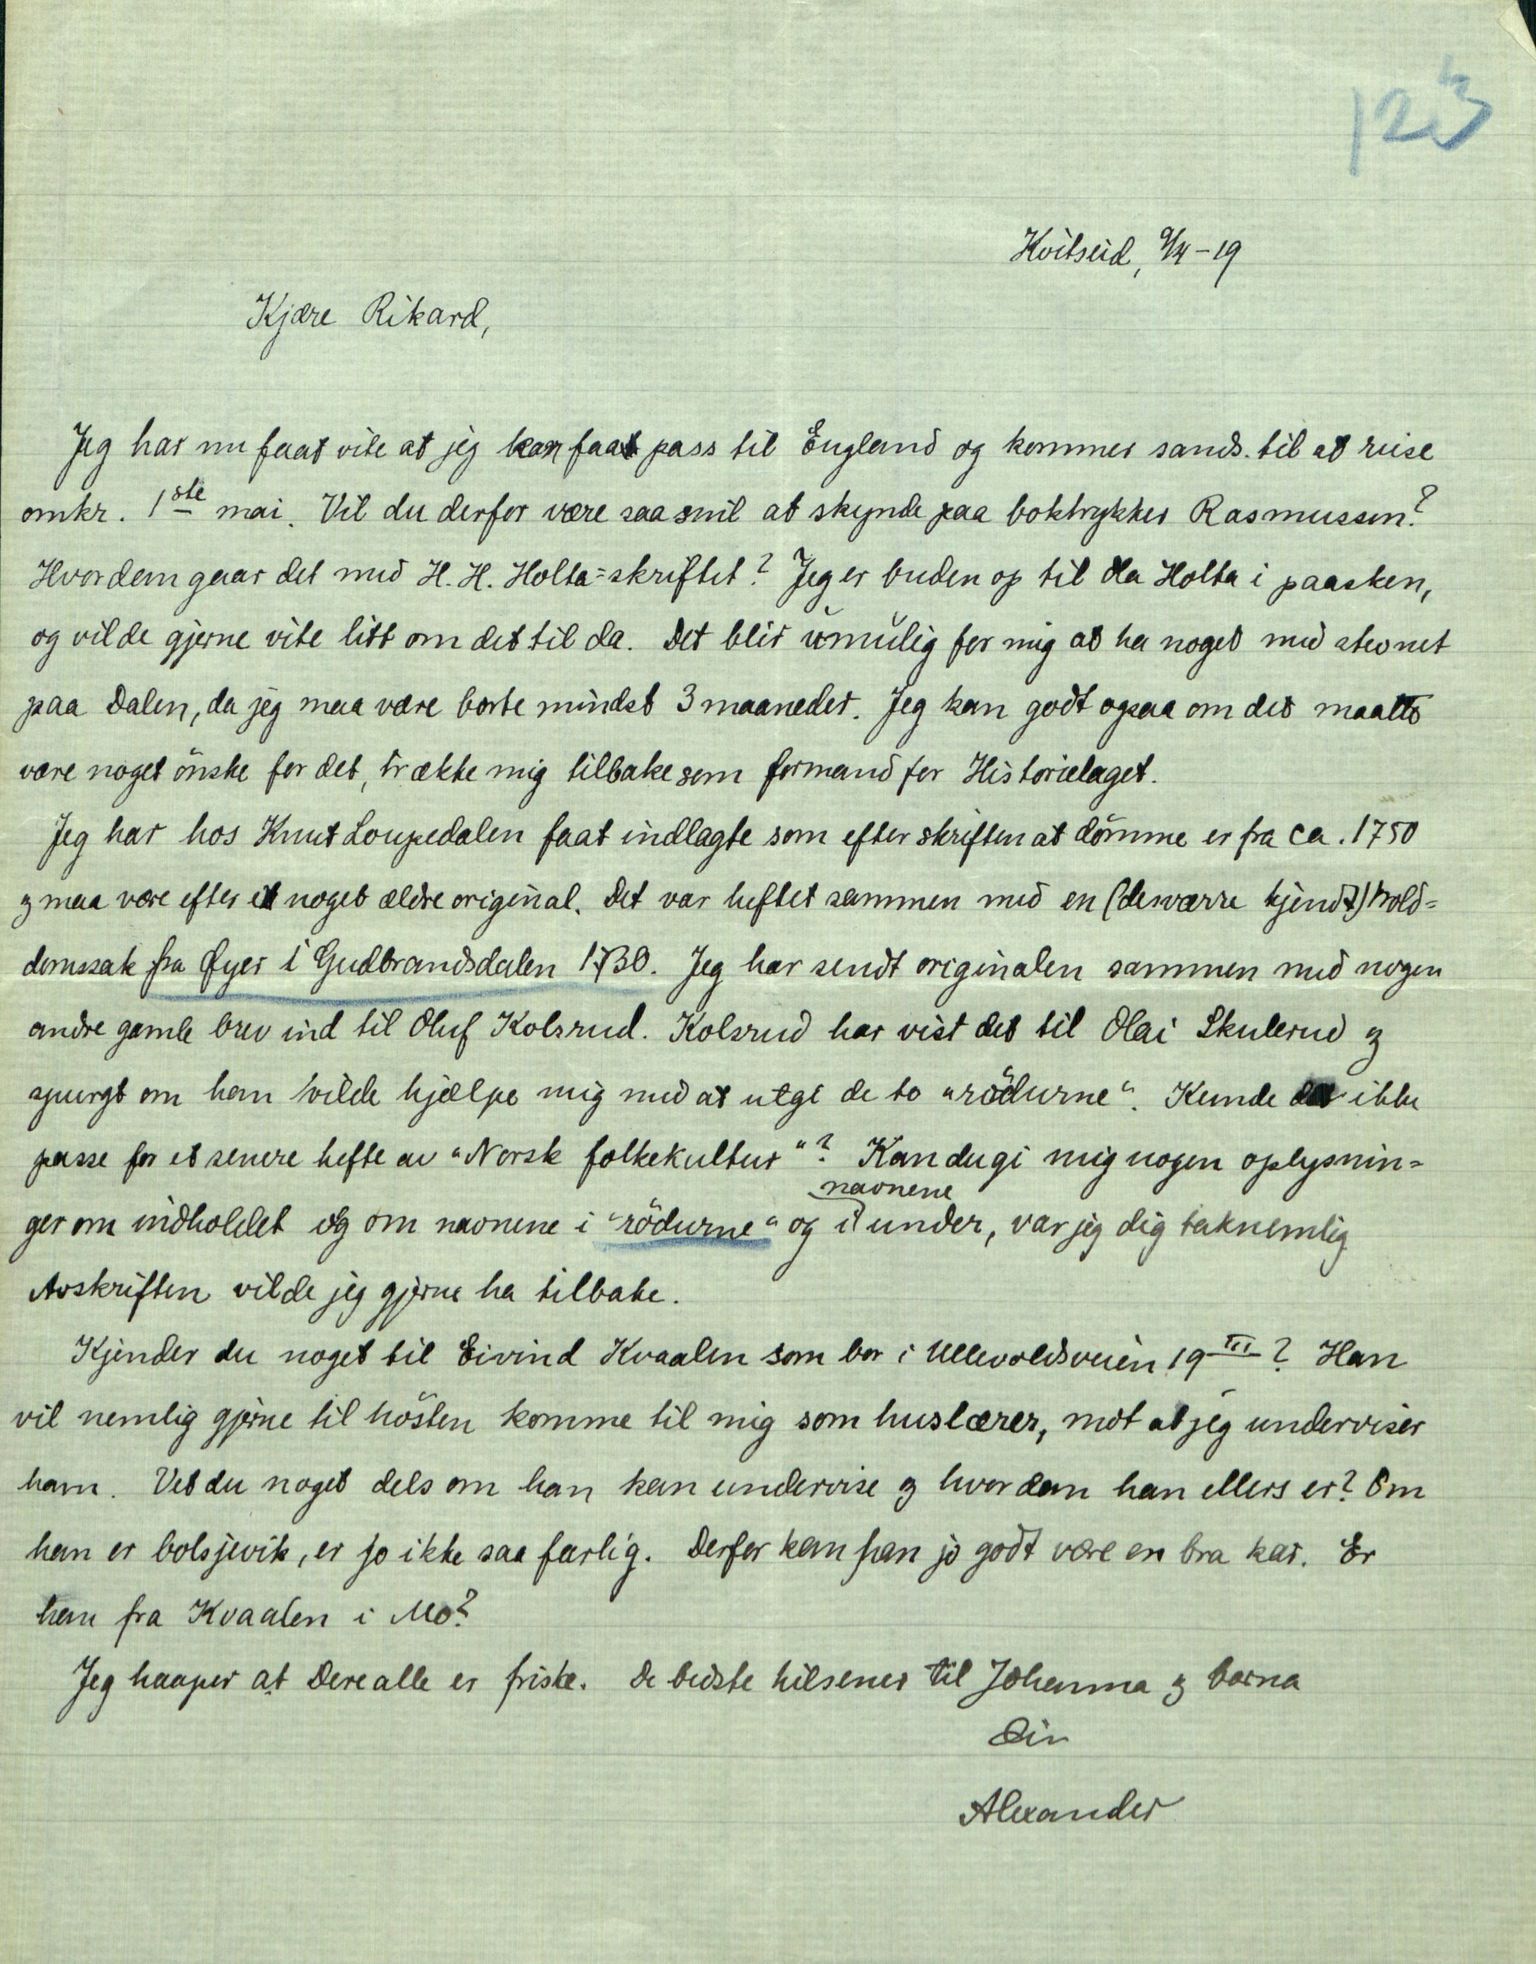 123
Kvitseid, 9/4-19
Kjære Rikard,
Jeg har nu faat vite at jeg kan faa pass til England og kommer sands. til at reise
omkr. 1ste mai. Vil du derfor være saa snil at skynde paa boktrykker Rasmussen?
Hvordan gaar det med H. H. Holta=skriftet? Jeg er buden op til Ha Holta i paasken,
og vilde gjerne vite litt om det til da. Det blir umulig for mig at ha noget med stevnet
paa Dalen, da jeg maa være borte mindst 3 maaneder. Jeg kan godt ogsaa om det maatte
være noget önske for det, trække mig tilbake som formand for Historielaget.
Jeg har hos Knut Loupedalen faat indlagte som efter skriften at dömme er fra ca. 1750
og maa være efter et noget ældre original. Det var heftet sammen med en (desværre kjendt) trold=
domssak fra Øyer i Gudbrandsdalen 1730. Jeg har sendt originalen sammen med nogen
andre gamle brev ind til Oluf Kolsrud. Kolsrud har vist det til Olai Skulerud og
spurgt om han vilde hjælpe mig med at utgi de to "rödurne". Kunde det ikke
passe for et senere hefte av "Norsk folkekultur"? Kan du gi mig nogen oplysnin=
ger om indholdet og om navnene i "rödurne" og navnene i under, var jeg dig taknemlig
Avskriften vilde jeg gjerne ha tilbake.
Kjender du noget til Eivind Kvaalen som bor i Ullevoldsveien 19 III? Han
vil nemlig gjerne til hösten komme til mig som huslærer, mot at jeg underviser
ham. Vet du noget dels om han kan undervise og hvordan han ellers er? Om
han er bolsjevik, er jo ikke saa farlig. Derfor kan han jo godt være en bra kar. Er
han fra Kvaalen i Mo?
Jeg haaper at Dere alle er friske. De bedste hilsener til Johanna og barna
Din
Alexander